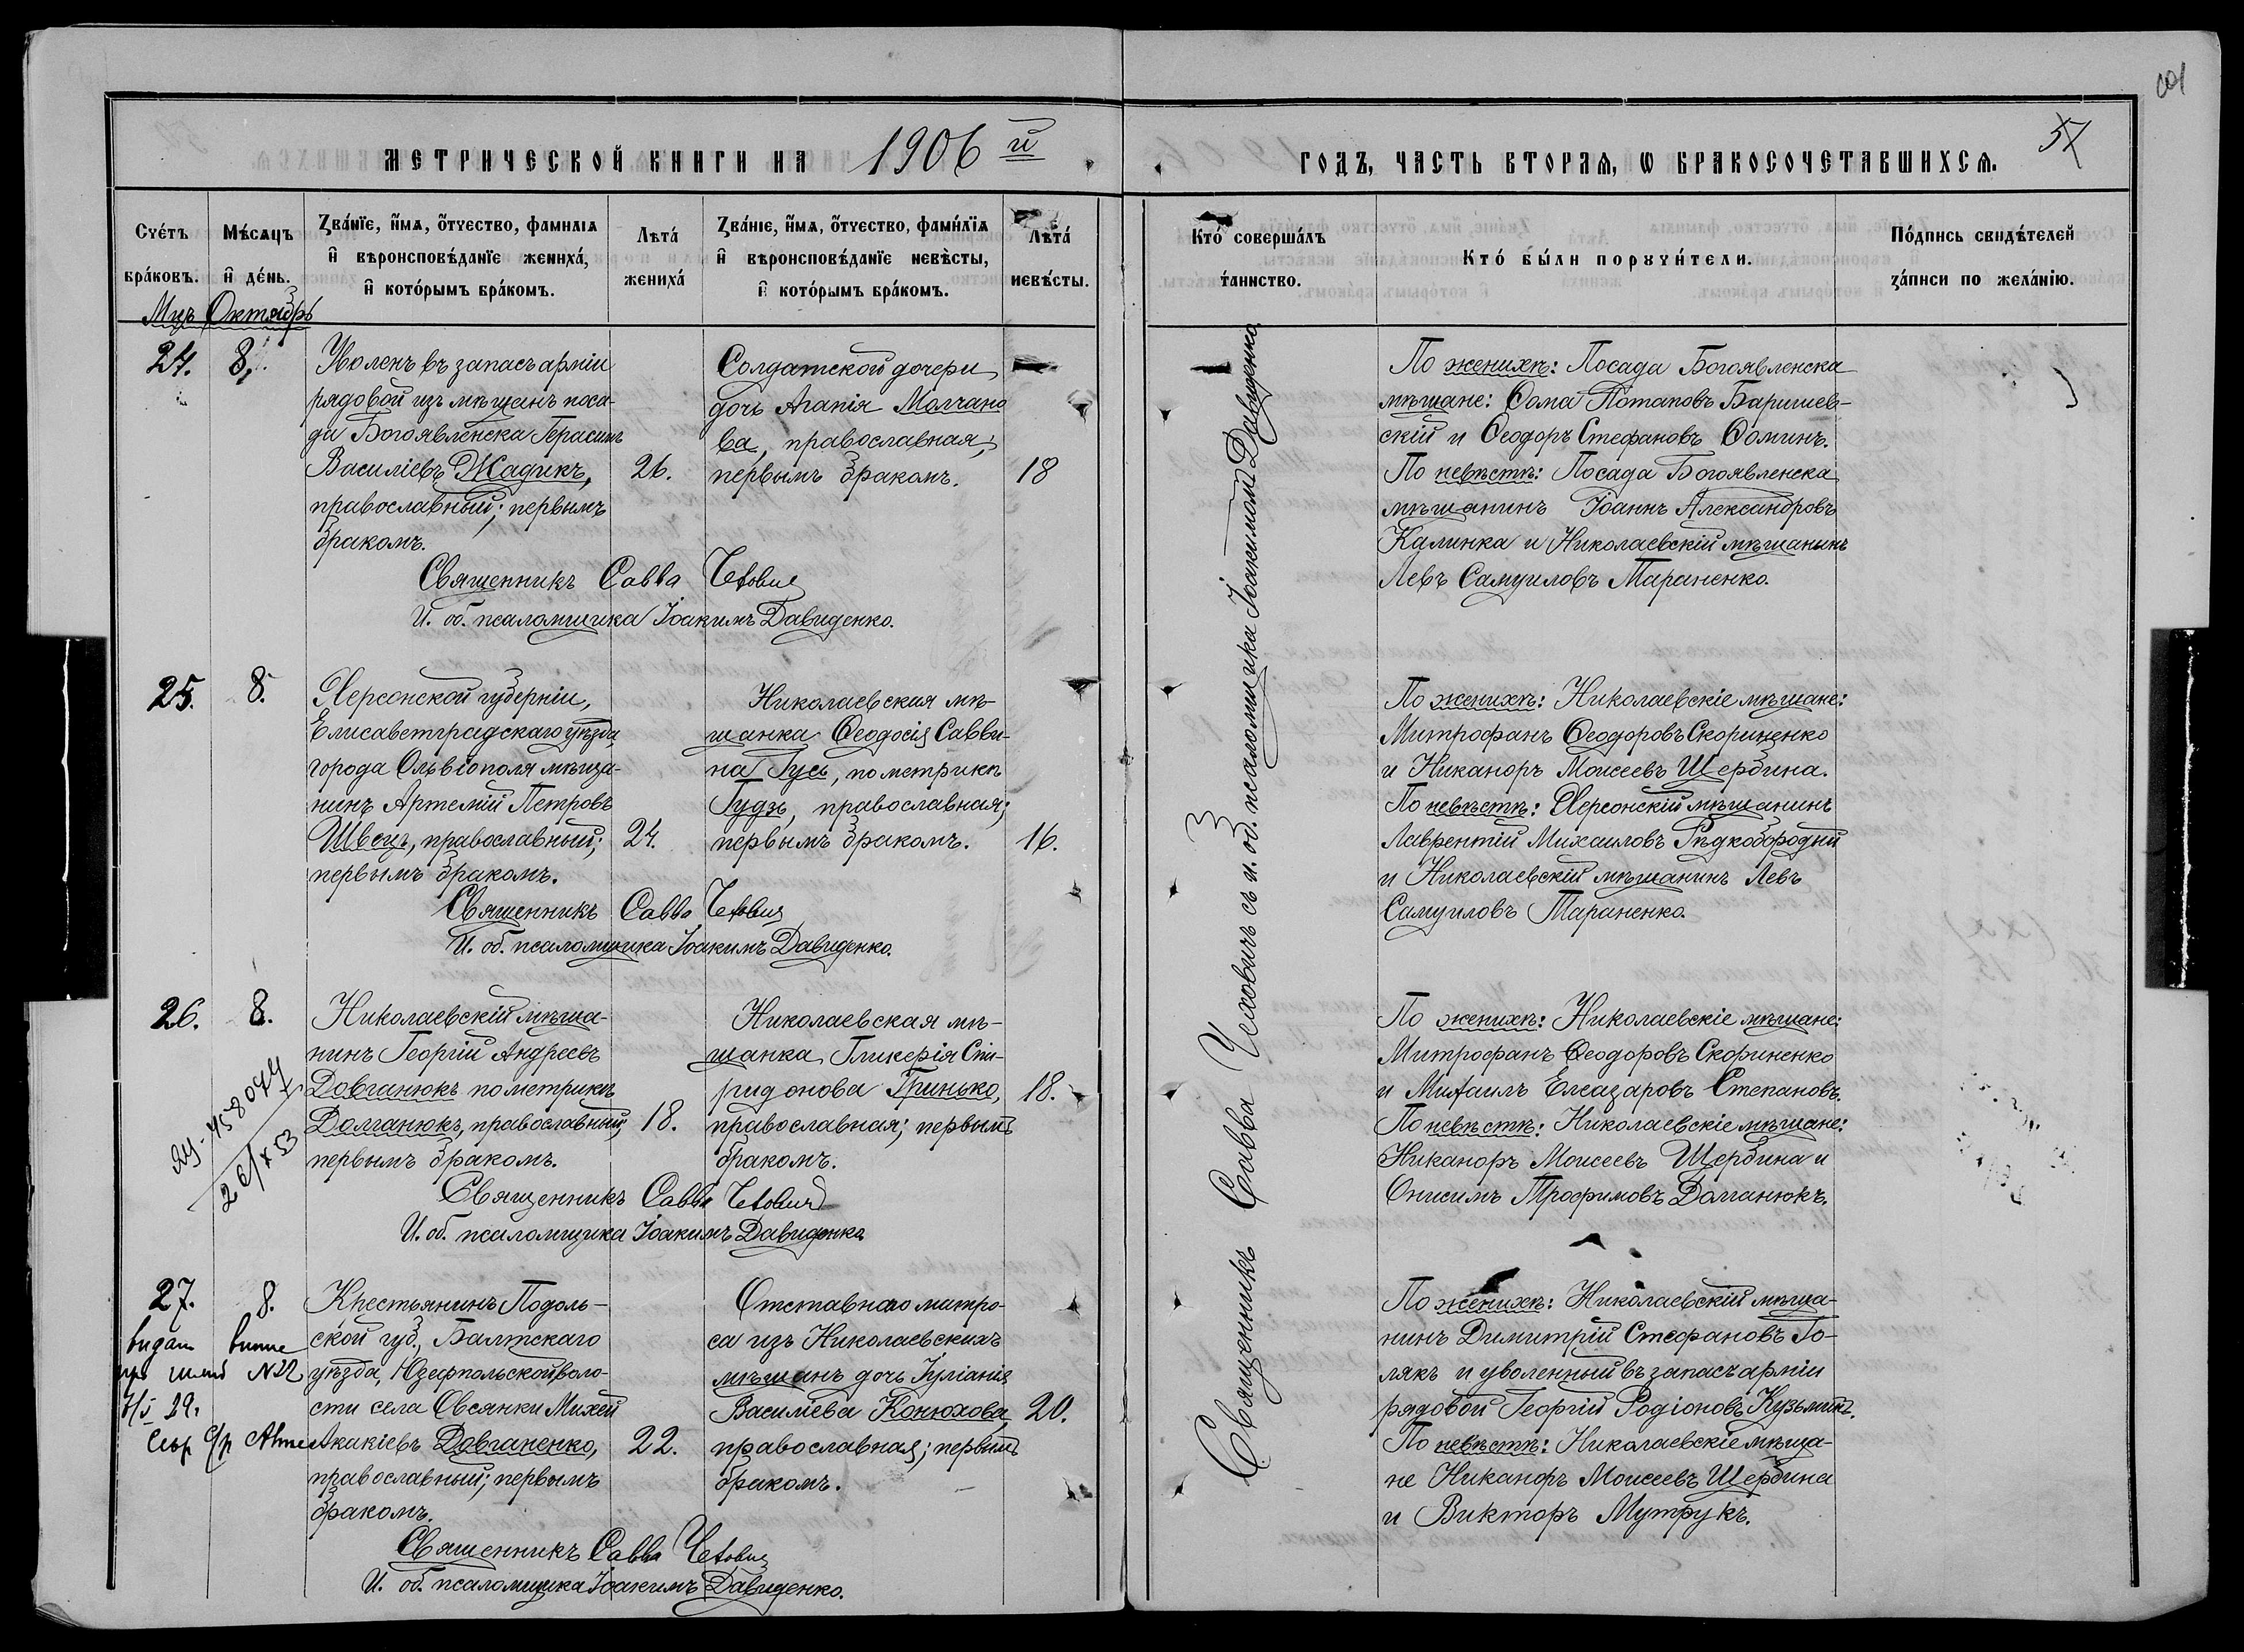 МЕТРИЧЕСКОЙ КНИГИ НА 1906й
Счетъ браковъ.
Мѣсяцъ и день.
Званіе, имя, отчество, фамилія и вѣроисповѣданіе жениха, и которымъ бракомъ.
Лѣта жениха
Званіе, имя, отчество, фамилія и вѣроисповѣданіе невѣсты, и которымъ бракомъ.
Лѣта невѣсты.
Мцъ Октябрь
24. 8.
Уволенъ въ запасъ арміи
рядовой изъ мѣщанъ поса-
да Богоявленска Герасимъ
Василіевъ Жадикъ,
православный; первымъ
бракомъ.
26.
Солдатской дочери
дочь Агапія Молчано
ва, православная;
первымъ бракомъ.
18
Священникъ Савва Чеховичъ
И. об. псаломщика Іоакимъ Давиденко.
25. 8.
Херсонской губерніи,
Елисаветградскаго уѣзда,
города Ольвіополя мѣща-
нинъ Артемій Петровъ
Швецъ, православный;
первымъ бракомъ.
24.
Николаевская мѣ-
щанка Ѳеодосія Савви-
на Гусь, по метрикѣ
Гудзь, православная;
первымъ бракомъ.
16.
Священникъ Савва Чеховичъ
И. об. псаломщика Іоакимъ Давиденко.
26. 8.
Николаевскій мѣща-
нинъ Георгій Андреевъ
Довганюкъ по метрикѣ
Долганюкъ, православный;
первымъ бракомъ.
18.
Николаевская мѣ-
щанка Гликерія Спи-
ридонова Гринько,
православная; первымъ
бракомъ.
18.
Священникъ Савва Чеховичъ
И. об. псаломщика Іоакимъ Давиденко
27. 8.
№ 22
Крестьянинъ Подоль-
ской губ., Балтскаго
уѣзда, Юзефпольской воло-
сти села Овсянки Михей
Акакіевъ Довганенко,
православный; первымъ
бракомъ.
22.
Отставного матро-
са изъ Николаевскихъ
мѣщанъ дочь Іуліанія
Василіева Конюхова,
православная; первымъ
бракомъ.
20.
Священникъ Савва Чеховичъ
И. об. псаломщика Іоакимъ Давиденко.
57
ГОДЪ, ЧАСТЬ ВТОРАЯ, Ѡ БРАКОСОЧЕТАВШИХСЯ.
Кто совершалъ таинство.
Кто были поручители.
Подпись свидѣтелей записи по желанію.
Священникъ Савва Чеховичъ съ и. об. псаломщика Іоакимомъ Давиденко.
По женихѣ: Посада Богоявленска
мѣщане: Ѳома Потаповъ Баришев-
скій и Ѳеодоръ Стефановъ Ѳоминъ.
По невѣстѣ: Посада Богоявленска
мѣщанинъ Іоаннъ Александровъ
Калинка и Николаевскій мѣщанинъ
Левъ Самуиловъ Тараненко.
По женихѣ: Николаевскіе мѣщане:
Митрофанъ Ѳеодоровъ Скориненко
и Никаноръ Моисеевъ Щербина.
По невѣстѣ: Херсонскій мѣщанинъ
Лаврентій Михаиловъ Рѣдкобородый
и Николаевскій мѣщанинъ Левъ
Самуиловъ Тараненко.
По женихѣ: Николаевскіе мѣщане:
Митрофанъ Ѳеодоровъ Скориненко
и Михаилъ Елеазаровъ Степановъ.
По невѣстѣ: Николаевскіе мѣщане:
Никаноръ Моисеевъ Щербина и
Онисимъ Трофимовъ Долганюкъ.
По женихѣ: Николаевскій мѣща-
нинъ Димитрій Стефановъ Го-
лякъ и уволенный въ запасъ арміи
рядовой Георгій Родіоновъ Кузьминъ.
По невѣстѣ: Николаевскіе мѣща-
не Никаноръ Моисеевъ Щербина
и Викторъ Мутрукъ.